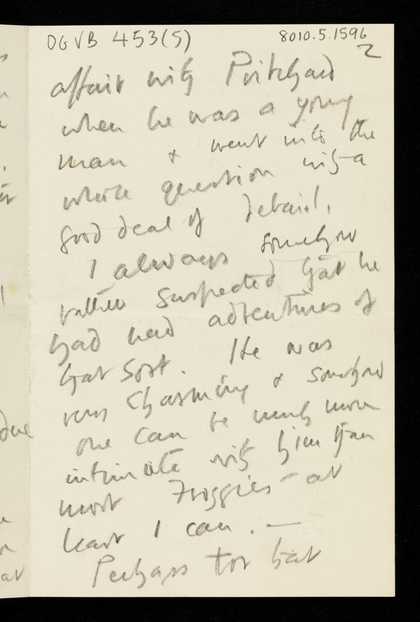 DGVB 453(5)
8010.5.1596
2
affair with Pritchard
when he was a young
man & went into the
whole question with a
good deal of detail.
I always somehow
rather suspected that he
had had adventures of
that sort. He was
very charming & somehow
one can be much more
intimate with him than
most Froggies - at
least I can. —
Perhaps for that